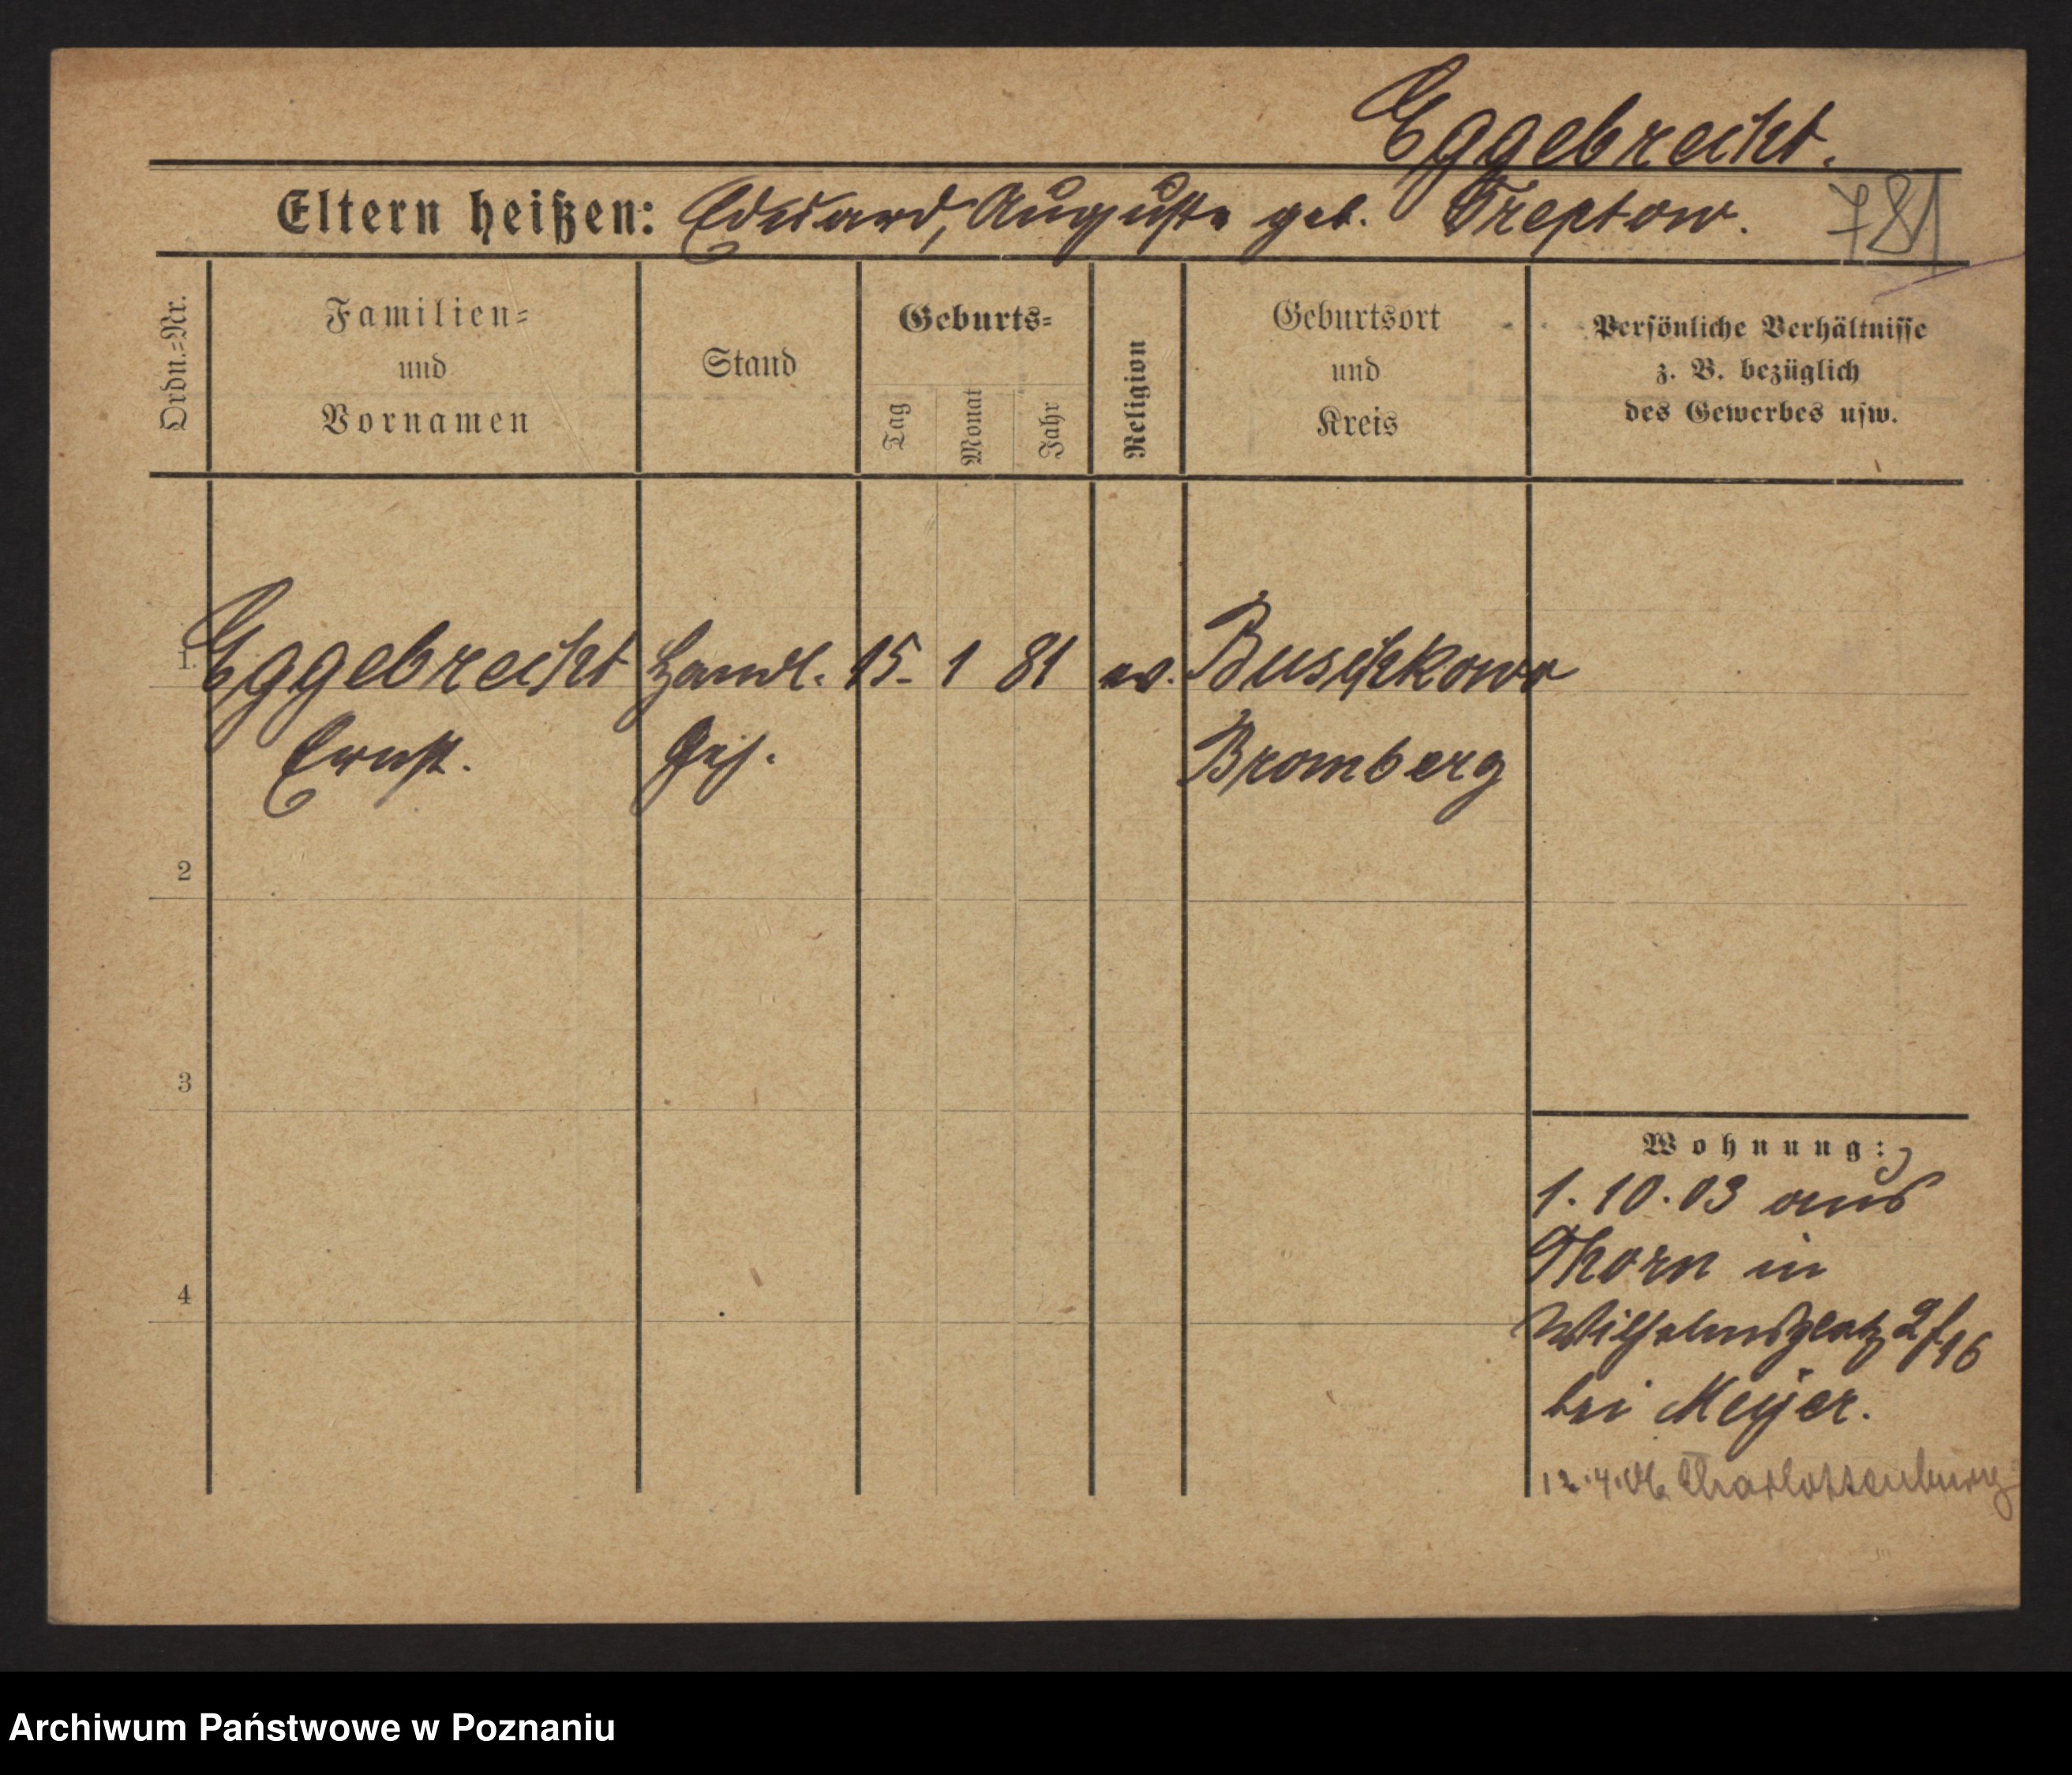 Eggebrecht.
Eltern heißen: Eduard, Auguste geb. Treptow. 781
Ordn.-Nr.
Familien-
und
Vornamen
Stand
Geburts-
Tag
Monat
Jahr
Religion
Geburtsort
und
Kreis
Persönliche Verhältnisse
z. B. bezüglich
des Gewerbes usw.
1. Eggebrecht Handl. 15. 1 81 ev. Buschkowo
Ernst. Geh. Bromberg
2
3
4
Wohnung:
1. 10. 03 aus
Thorn in
Wilhelmsplatz 2/16
bei Meyer.
12.4.06 Charlottenburg
Archiwum Państwowe w Poznaniu